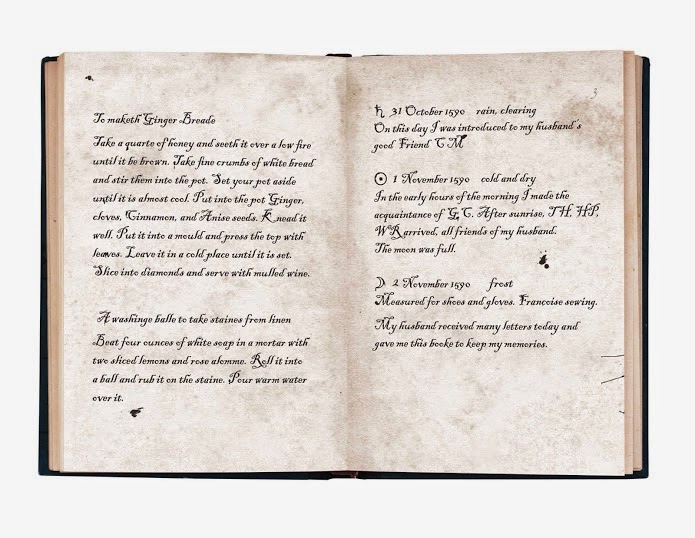 To maketh Ginger Breade
Take a quarte of honey and seeth it over a low fire
until it be brown. Take fine crumbs of white bread
and stir them into the pot. Set your pot aside
until it is almost cool. Put into the pot Ginger,
cloves, Cinnamon, and Anise seeds. Knead it
well. Put it into a mould and press the top with
leaves. Leave it in a cold place until it is set.
Slice into diamonds and serve with mulled wine.
A washinge balle to take staines from linen
Beat four ounces of white soap in a mortar with
two sliced lemons and rose alomme. Roll it into
a ball and rub it on the staine. Pour warm water
over it.
3
♄ 31 October 1590 rain, clearing
On this day I was introduced to my husband's
good Friend C M
☉ 1 November 1590 cold and dry
In the early hours of the morning I made the
acquaintance of G, C. After sunrise, TH, HP,
WR arrived, all friends of my husband.
The moon was full.
☽ 2 November 1590 frost
Measured for shoes and gloves. Francoise sewing.
My husband received many letters today and
gave me this booke to keep my memories.